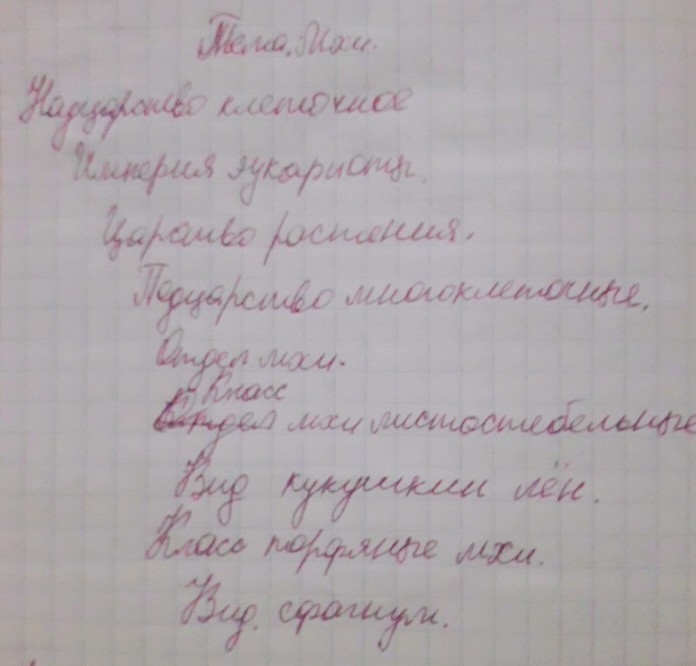 Тема. Мхи.
Надцарство клеточное
Империя эукариоты.
Царство растения.
Подцарство многоклеточные.
Отдел мхи.
Класс
Отдел мхи листостебельные
Вид кукушкин лён.
Класс торфяные мхи.
Вид. сфагнум.